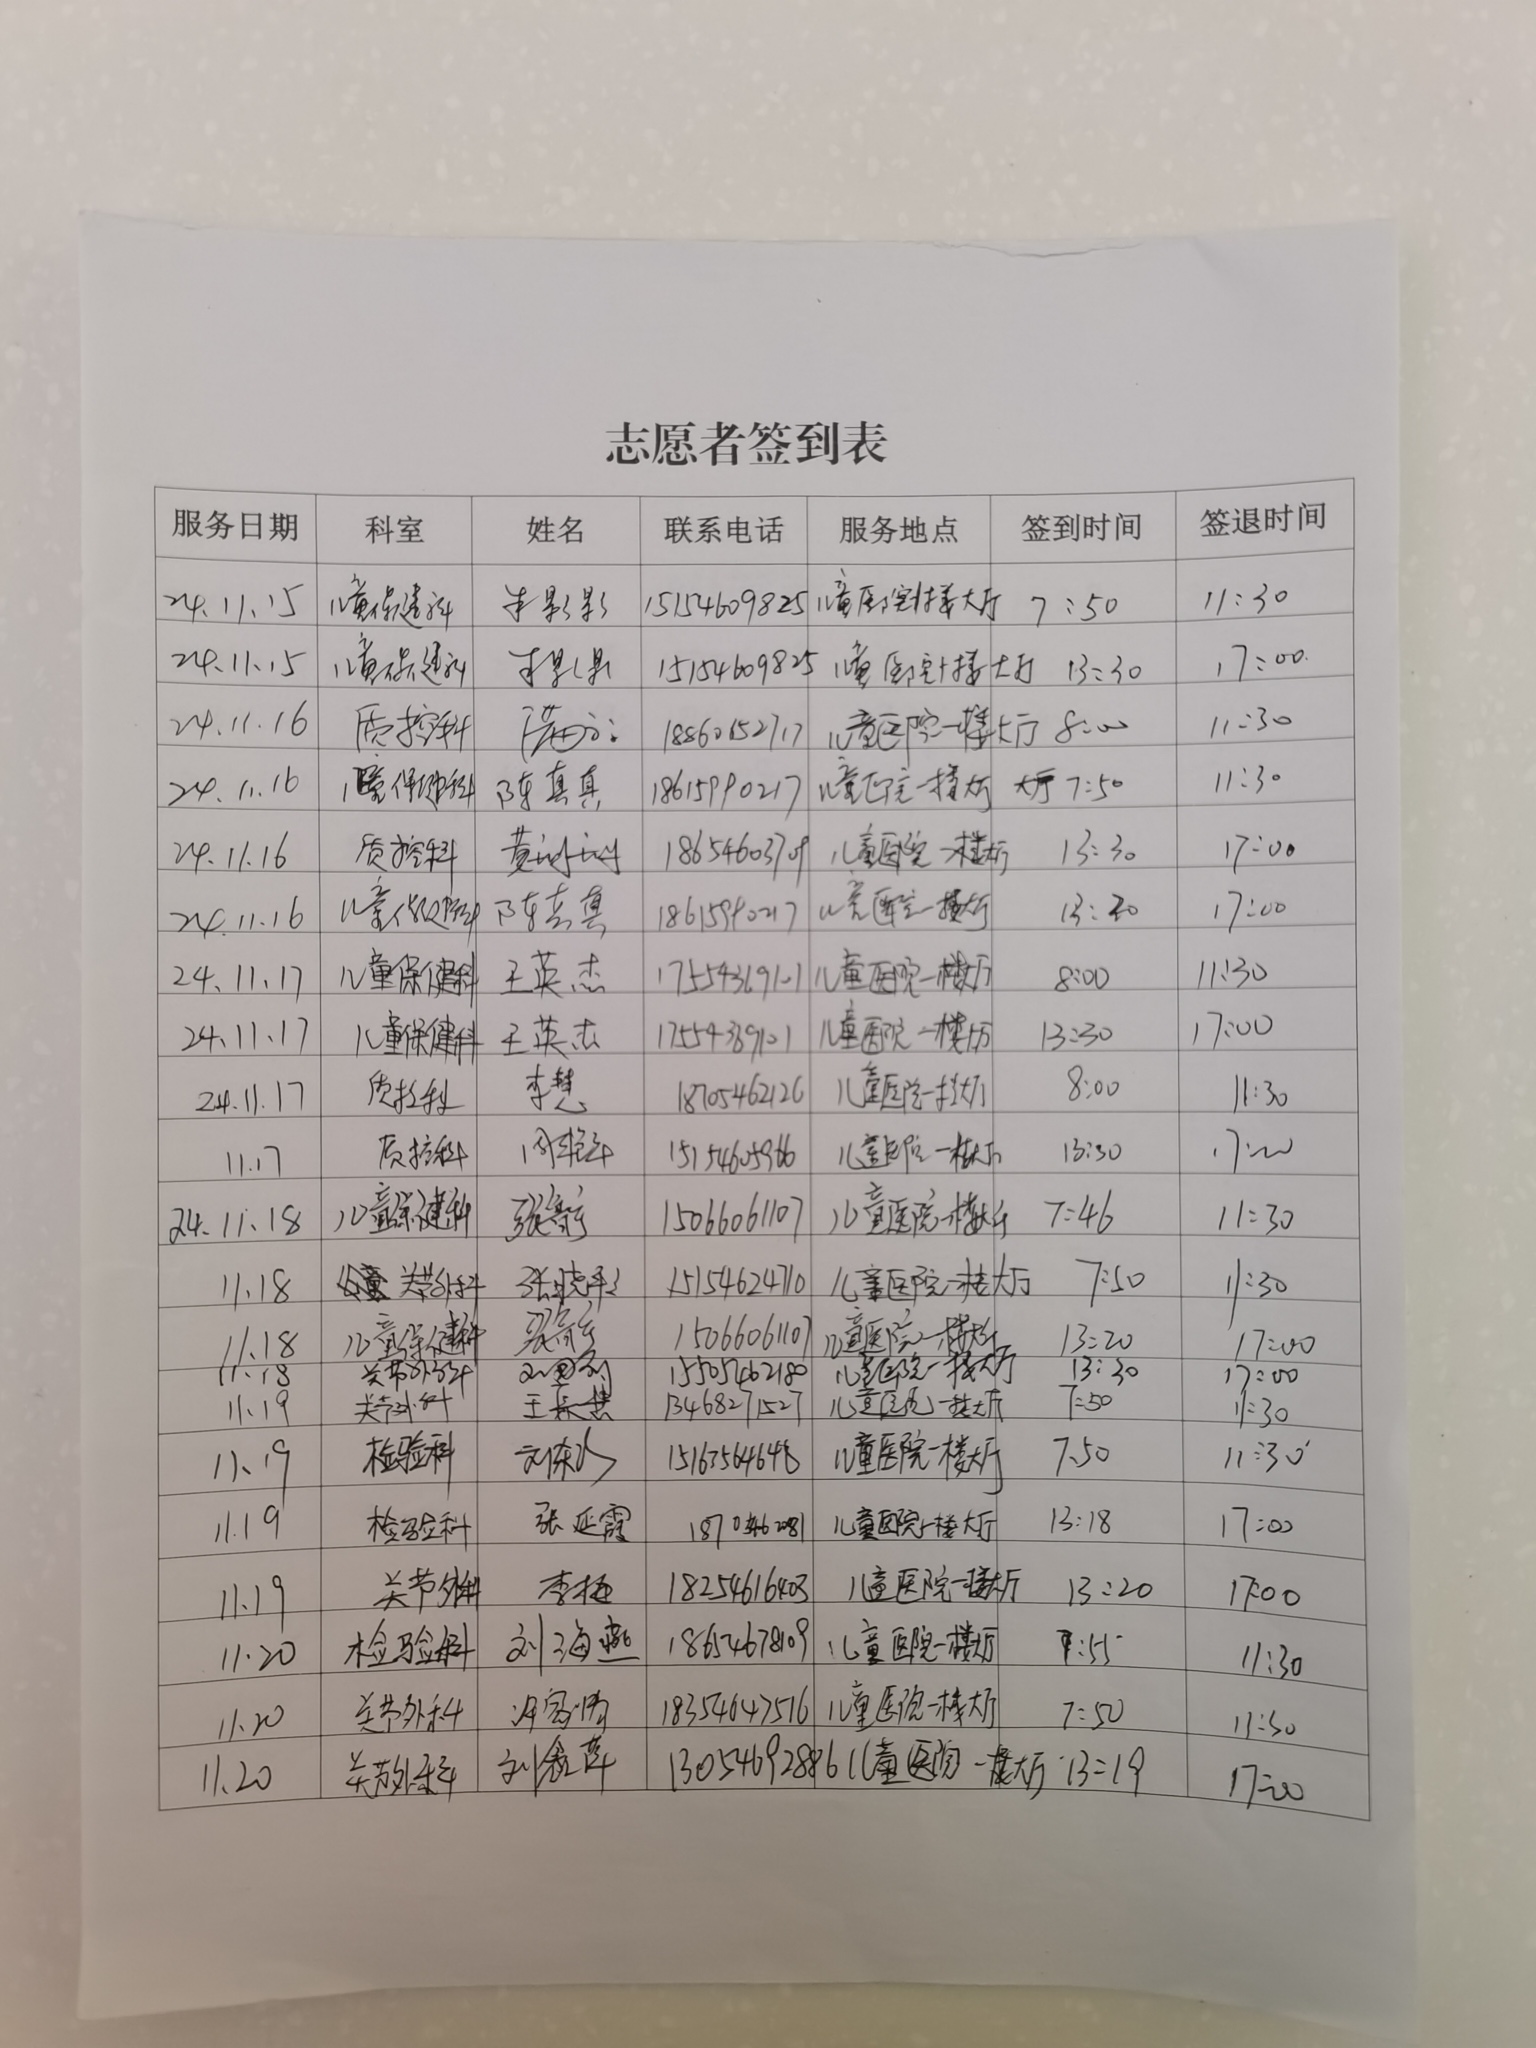 志愿者签到表
服务日期 科室 姓名 联系电话 服务地点 签到时间 签退时间
24.11.15 儿童保健科 影影 15154609825 儿童医院1楼大厅 7:50 11:30
24.11.15 儿童保健科 15154609825 儿童医院1楼大厅 13:30 17:00
24.11.16 质控科 18860152717 儿童医院一楼大厅 8:00 11:30
24.11.16 儿童保健科 陈真真 18615990217 儿童医院一楼大厅 大厅 7:50 11:30
24.11.16 质控科 黄 18654603709 儿童医院一楼大厅 13:30 17:00
24.11.16 儿童保健科 陈真真 18615990217 儿童医院一楼大厅 13:30 17:00
24.11.17 儿童保健科 王英杰 17554369101 儿童医院一楼大厅 8:00 11:30
24.11.17 儿童保健科 王英杰 17554369101 儿童医院一楼大厅 13:30 17:00
24.11.17 质控科 李慧 18705462126 儿童医院一楼大厅 8:00 11:30
11.17 质控科 15154605966 儿童医院一楼大厅 13:30 17:00
24.11.18 儿童保健科 15066061107 儿童医院一楼大厅 7:46 11:30
11.18 关节外科 张晓彤 15154624710 儿童医院一楼大厅 7:50 11:30
11.18 儿童保健科 15066061107 儿童医院一楼大厅 13:20 17:00
11.18 关节外科 15505462180 儿童医院一楼大厅 13:30 17:00
11.19 关节外科 王 13468271527 儿童医院一楼大厅 7:50 11:30
11.19 检验科 刘 15163564648 儿童医院一楼大厅 7:50 11:30
11.19 检验科 张延霞 儿童医院一楼大厅 13:18 17:00
11.19 关节外科 李梅 18254616403 儿童医院一楼大厅 13:20 17:00
11.20 检验科 刘海燕 18654678109 儿童医院一楼大厅 7:55 11:30
11.20 关节外科 18354647516 儿童医院一楼大厅 7:50 11:30
11.20 关节外科 刘 萍 13054692886 儿童医院一楼大厅 13:19 17:00